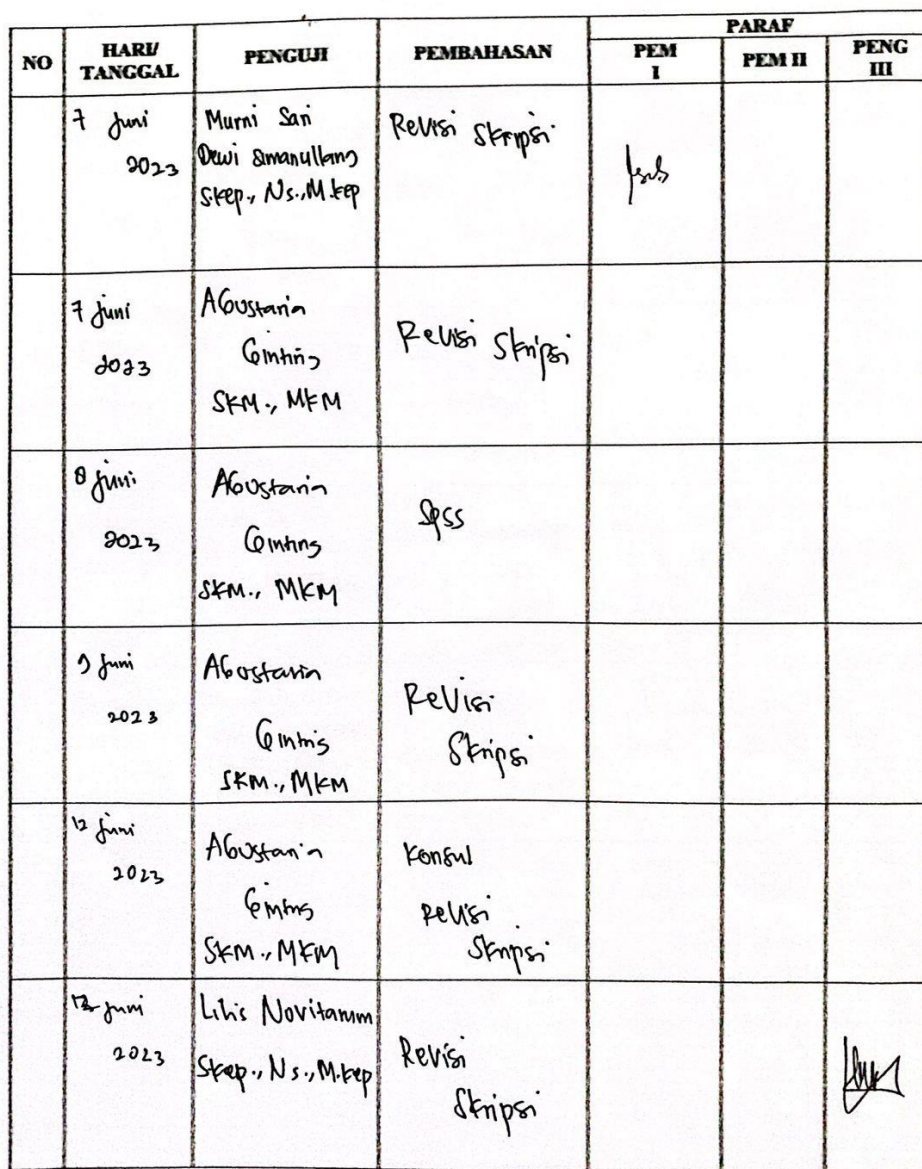 NO HARI/ TANGGAL PENGUJI PEMBAHASAN PARAF
PEM I PEM II PENG III
7 Juni 2023
Murni Sari
Dewi Simanullang
S.kep., Ns., M.kep
Revisi Skripsi
7 Juni
2023
AGustaria
Ginting
SKM., MKM
Revisi Skripsi
8 juni
2023
AGustaria
Ginting
SKM., MKM
Spss
9 Juni
2023
AGustaria
Ginting
SKM., MKM
Revisi
Skripsi
12 Juni
2023
AGustaria
Ginting
SKM., MKM
Konsul
Revisi
Skripsi
Juni
2023
Lilis Novitarum
S.kep., Ns., M.kep
Revisi
Skripsi